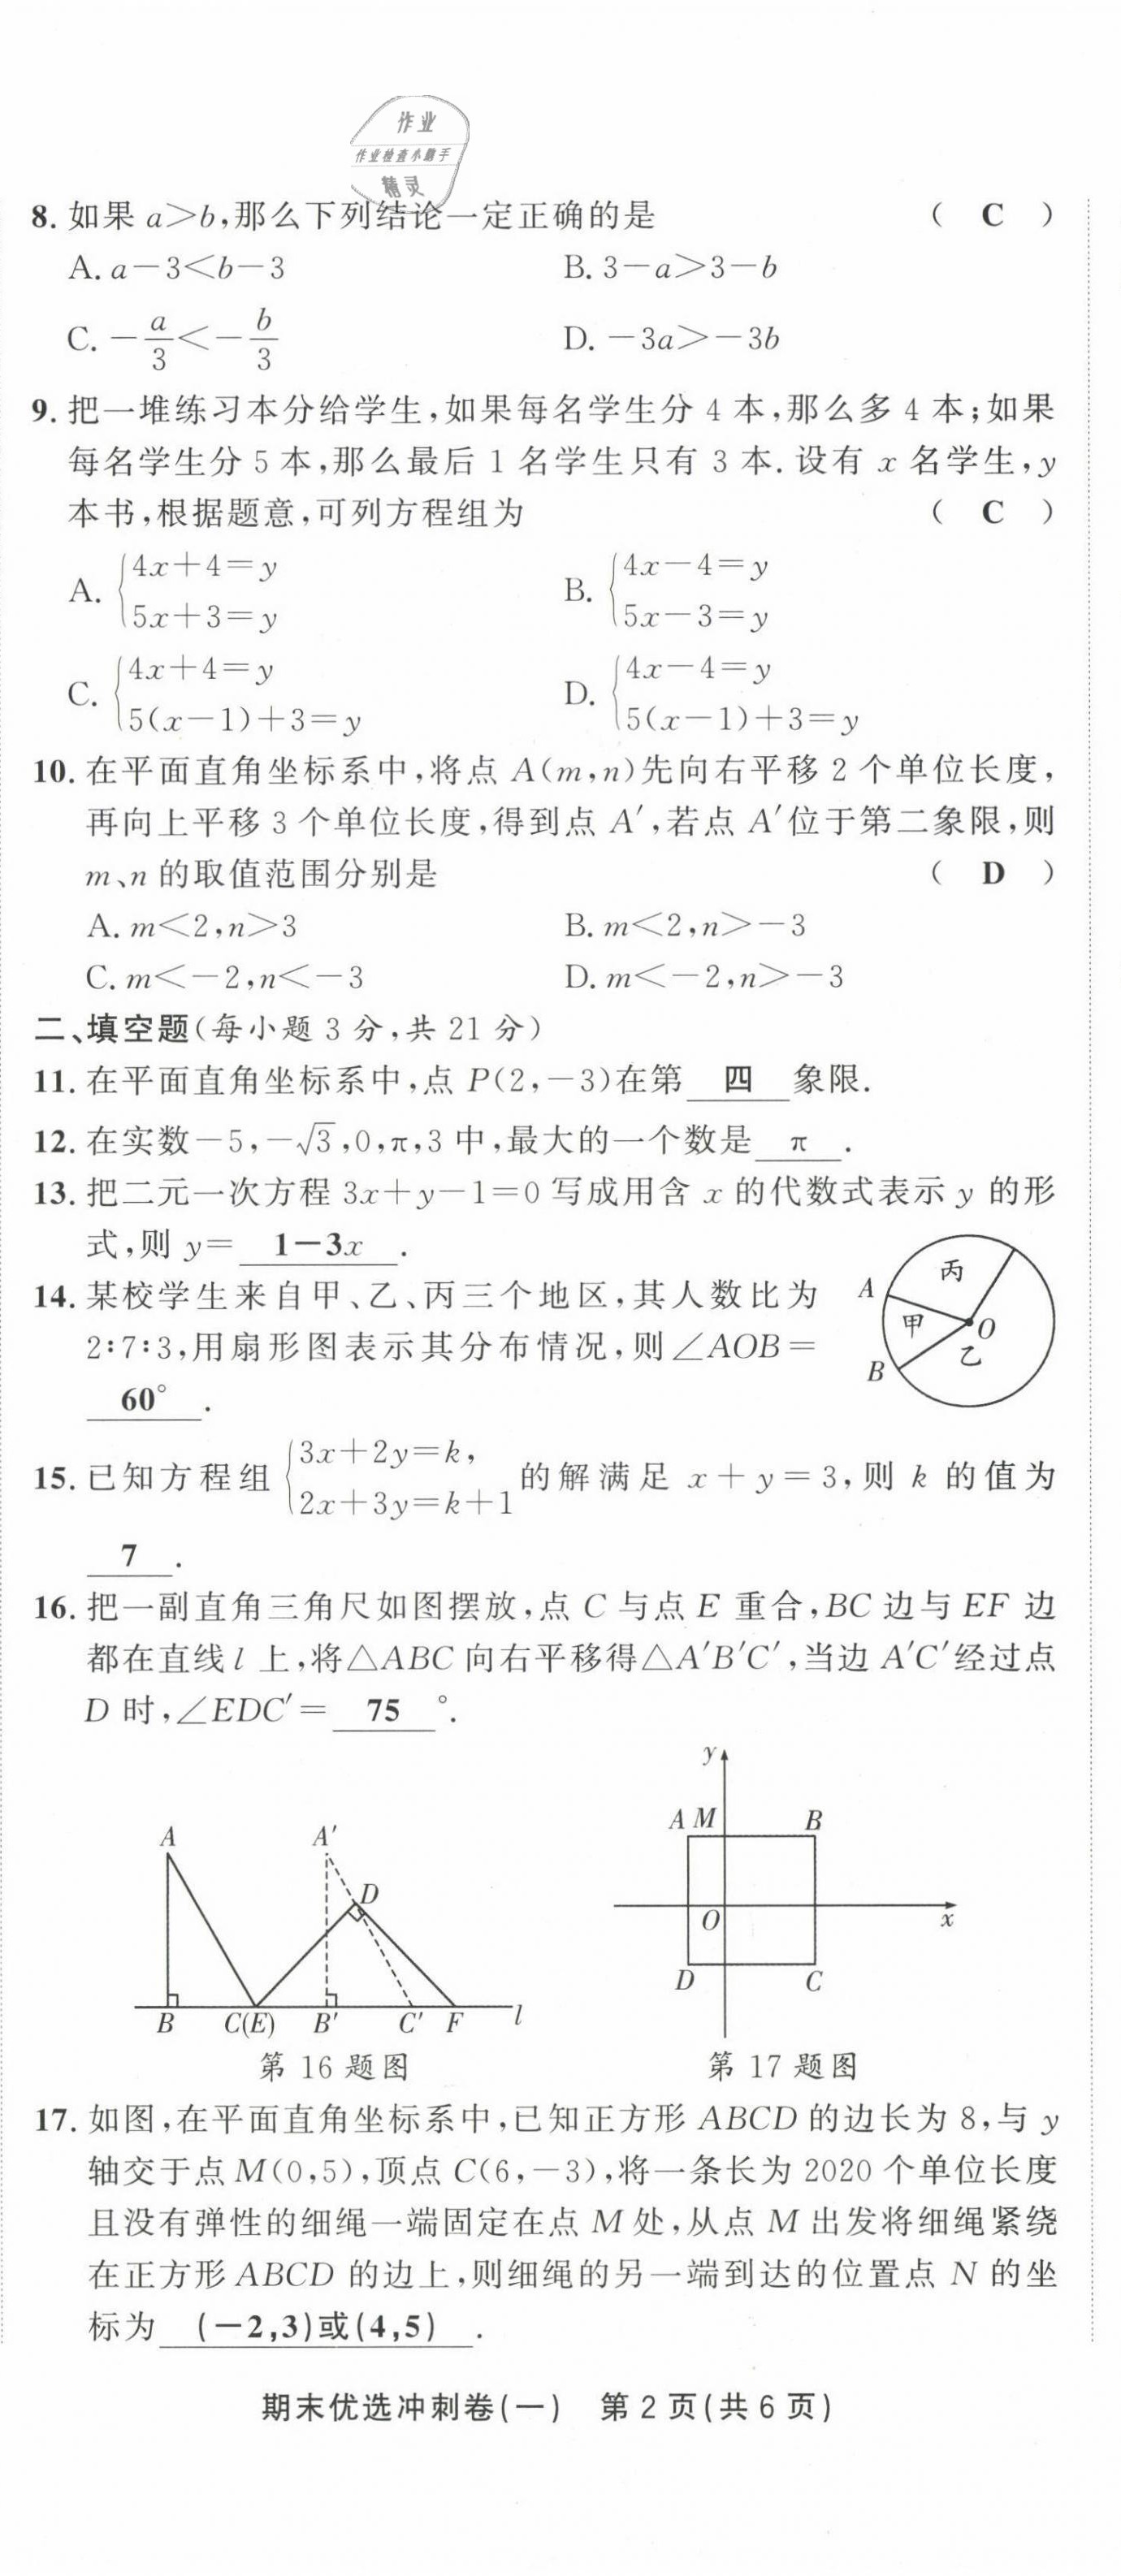 作业
作业检查小助手
精灵
8. 如果 a>b,那么下列结论一定正确的是 ( C )
A. a－3<b－3 B. 3－a>3－b
C. －a/3<－b/3 D. －3a>－3b
9. 把一堆练习本分给学生,如果每名学生分 4 本,那么多 4 本;如果
每名学生分 5 本,那么最后 1 名学生只有 3 本. 设有 x 名学生,y
本书,根据题意,可列方程组为 ( C )
A. {4x＋4＝y 5x＋3＝y B. {4x－4＝y 5x－3＝y
C. {4x＋4＝y 5(x－1)＋3＝y D. {4x－4＝y 5(x－1)＋3＝y
10. 在平面直角坐标系中,将点 A(m,n)先向右平移 2 个单位长度,
再向上平移 3 个单位长度,得到点 A′,若点 A′位于第二象限,则
m、n 的取值范围分别是 ( D )
A. m<2,n>3 B. m<2,n>－3
C. m<－2,n<－3 D. m<－2,n>－3
二、填空题(每小题 3 分,共 21 分)
11. 在平面直角坐标系中,点 P(2,－3)在第 四 象限.
12. 在实数－5,－√3,0,π,3 中,最大的一个数是 π .
13. 把二元一次方程 3x＋y－1＝0 写成用含 x 的代数式表示 y 的形
式,则 y＝ 1－3x .
14. 某校学生来自甲、乙、丙三个地区,其人数比为
2∶7∶3,用扇形图表示其分布情况,则∠AOB＝
60° .
丙
A
甲 O
乙
B
15. 已知方程组 {3x＋2y＝k, 2x＋3y＝k＋1 的解满足 x＋y＝3,则 k 的值为
7 .
16. 把一副直角三角尺如图摆放,点 C 与点 E 重合,BC 边与 EF 边
都在直线 l 上,将△ABC 向右平移得△A′B′C′,当边 A′C′经过点
D 时,∠EDC′＝ 75 °.
A A′
D
B C(E) B′ C′ F l
第 16 题图
y
A M B
O x
D C
第 17 题图
17. 如图,在平面直角坐标系中,已知正方形 ABCD 的边长为 8,与 y
轴交于点 M(0,5),顶点 C(6,－3),将一条长为 2020 个单位长度
且没有弹性的细绳一端固定在点 M 处,从点 M 出发将细绳紧绕
在正方形 ABCD 的边上,则细绳的另一端到达的位置点 N 的坐
标为 (－2,3)或(4,5) .
期末优选冲刺卷(一) 第 2 页(共 6 页)